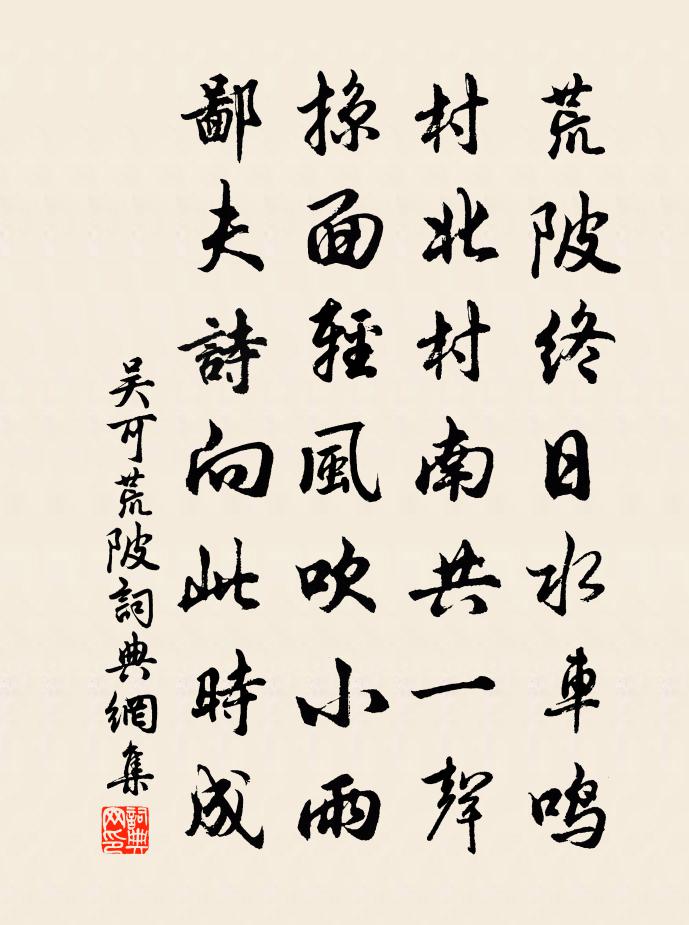 荒陂終日水車鳴
村北村南共一聲
掠面輕風吹小雨
鄙夫詩向此時成
吴可荒陂詞典網集
詞典網印